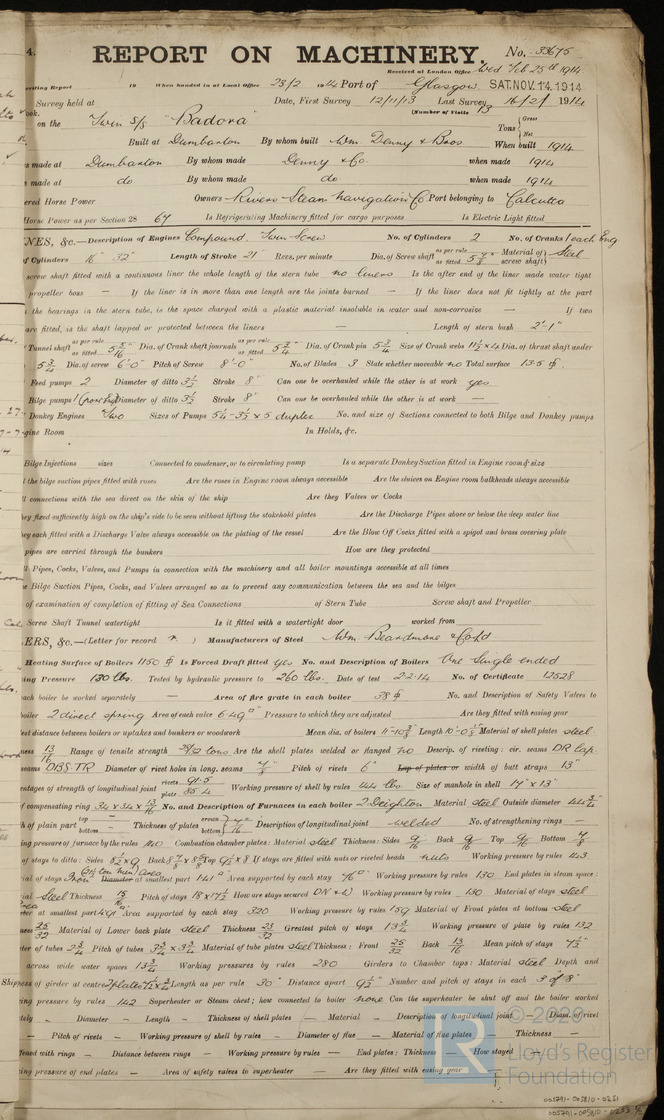 4.
REPORT ON MACHINERY. No. 33675
Received at London Office Wed Feb 25th 1914
writing Report 19 When handed in at Local Office 23/2 1914 Port of Glasgow SAT. NOV. 14. 1914
Survey held at Date, First Survey 12/11/13 Last Survey 16/2/ 1914
ook. (Number of Visits 13
on the Twin S/S "Badora" Tons { Gross Net
Built at Dumbarton By whom built Wm. Denny & Bros When built 1914
s made at Dumbarton By whom made Denny & Co. when made 1914
s made at do By whom made do when made 1914
ered Horse Power Owners Rivers Steam Navigation Co Port belonging to Calcutta
Horse Power as per Section 28 67 Is Refrigerating Machinery fitted for cargo purposes Is Electric Light fitted
NES, &c.—Description of Engines Compound. Twin Screw No. of Cylinders 2 No. of Cranks 1 each Eng
of Cylinders 16" 32" Length of Stroke 21 Revs. per minute Dia. of Screw shaft as per rule as fitted Material of screw shaft Steel
screw shaft fitted with a continuous liner the whole length of the stern tube no liners Is the after end of the liner made water tight
propeller boss — If the liner is in more than one length are the joints burned — If the liner does not fit tightly at the part
the bearings in the stern tube, is the space charged with a plastic material insoluble in water and non-corrosive — If two
are fitted, is the shaft lapped or protected between the liners — Length of stern bush 2'-1"
Tunnel shaft as per rule as fitted 5 5/16 Dia. of Crank shaft journals as per rule as fitted 5 3/4 Dia. of Crank pin 5 3/4 Size of Crank webs 11 1/2 x 4 Dia. of thrust shaft under
5 3/4 Dia. of screw 6'-0" Pitch of Screw 8'-0" No. of Blades 3 State whether moveable no Total surface 13.5
Feed pumps 2 Diameter of ditto 3 1/2 Stroke 8" Can one be overhauled while the other is at work yes
Bilge pumps 1 Diameter of ditto 3 1/2 Stroke 8" Can one be overhauled while the other is at work —
Donkey Engines Two Sizes of Pumps 5 1/4 - 3 1/2 x 5 duplex No. and size of Suctions connected to both Bilge and Donkey pumps
gine Room In Holds, &c.
Bilge Injections sizes Connected to condenser, or to circulating pump Is a separate Donkey Suction fitted in Engine room & size
l the bilge suction pipes fitted with roses Are the roses in Engine room always accessible Are the sluices on Engine room bulkheads always accessible
l connections with the sea direct on the skin of the ship Are they Valves or Cocks
hey fixed sufficiently high on the ship's side to be seen without lifting the stokehold plates Are the Discharge Pipes above or below the deep water line
ey each fitted with a Discharge Valve always accessible on the plating of the vessel Are the Blow Off Cocks fitted with a spigot and brass covering plate
pipes are carried through the bunkers How are they protected
l Pipes, Cocks, Valves, and Pumps in connection with the machinery and all boiler mountings accessible at all times
e Bilge Suction Pipes, Cocks, and Valves arranged so as to prevent any communication between the sea and the bilges
of examination of completion of fitting of Sea Connections of Stern Tube Screw shaft and Propeller
Screw Shaft Tunnel watertight Is it fitted with a watertight door worked from
ERS, &c.—(Letter for record ) Manufacturers of Steel Wm. Beardmore & Co Ld
Heating Surface of Boilers 1150 Is Forced Draft fitted yes No. and Description of Boilers One Single ended
ing Pressure 130 lbs. Tested by hydraulic pressure to 260 lbs. Date of test 2.2.14 No. of Certificate 12528
each boiler be worked separately — Area of fire grate in each boiler 38 No. and Description of Safety Valves to
boiler 2 direct spring Area of each valve 6.49" Pressure to which they are adjusted Are they fitted with easing gear
est distance between boilers or uptakes and bunkers or woodwork Mean dia. of boilers Length Material of shell plates steel
ness 13/16 Range of tensile strength 28/32 tons Are the shell plates welded or flanged no Descrip. of riveting: cir. seams DR lap
seams DBS. TR Diameter of rivet holes in long. seams 7/8 Pitch of rivets 6" Lap of plates or width of butt straps 13"
entages of strength of longitudinal joint rivets 91.5 plate 85.4 Working pressure of shell by rules 144 lbs Size of manhole in shell 17" x 13"
of compensating ring 34 x 34 x 13/16 No. and Description of Furnaces in each boiler 2 Deighton Material steel Outside diameter 44 3/4
h of plain part top — bottom — Thickness of plates crown bottom 7/16 Description of longitudinal joint welded No. of strengthening rings —
ing pressure of furnace by the rules 140 Combustion chamber plates: Material steel Thickness: Sides 9/16 Back 9/16 Top 9/16 Bottom 7/8
of stays to ditto: Sides 8 1/2 x 9 Back Top 9 1/2 x 8 If stays are fitted with nuts or riveted heads nuts Working pressure by rules 143
ial of stays Iron at smallest part Area supported by each stay 76" Working pressure by rules 130 End plates in steam space:
ial Steel Thickness 15/16 Pitch of stays 18 x 17 1/2 How are stays secured DN & W Working pressure by rules 130 Material of stays steel
ter at smallest part Area supported by each stay 320 Working pressure by rules 159 Material of Front plates at bottom steel
ness 25/32 Material of Lower back plate steel Thickness 23/32 Greatest pitch of stays 13 3/4 Working pressure of plate by rules 132
ter of tubes 2 3/4 Pitch of tubes 3 3/4 x 3 3/4 Material of tube plates steel Thickness: Front 25/32 Back 13/16 Mean pitch of stays 7 1/2
across wide water spaces 13 3/4 Working pressures by rules 280 Girders to Chamber tops: Material steel Depth and
ss of girder at centre Length as per rule 30" Distance apart 9 1/2" Number and pitch of stays in each 3 of 8"
ing pressure by rules 142 Superheater or Steam chest; how connected to boiler none Can the superheater be shut off and the boiler worked
tely — Diameter — Length — Thickness of shell plates — Material — Description of longitudinal joint — Diam. of rivet
— Pitch of rivets — Working pressure of shell by rules — Diameter of flue — Material of flue plates Thickness —
fened with rings — Distance between rings — Working pressure by rules — End plates: Thickness — How stayed
ing pressure of end plates — Area of safety valves to superheater — Are they fitted with easing gear
LR
© 2020
Lloyd's Register
Foundation
005791-005810-0251